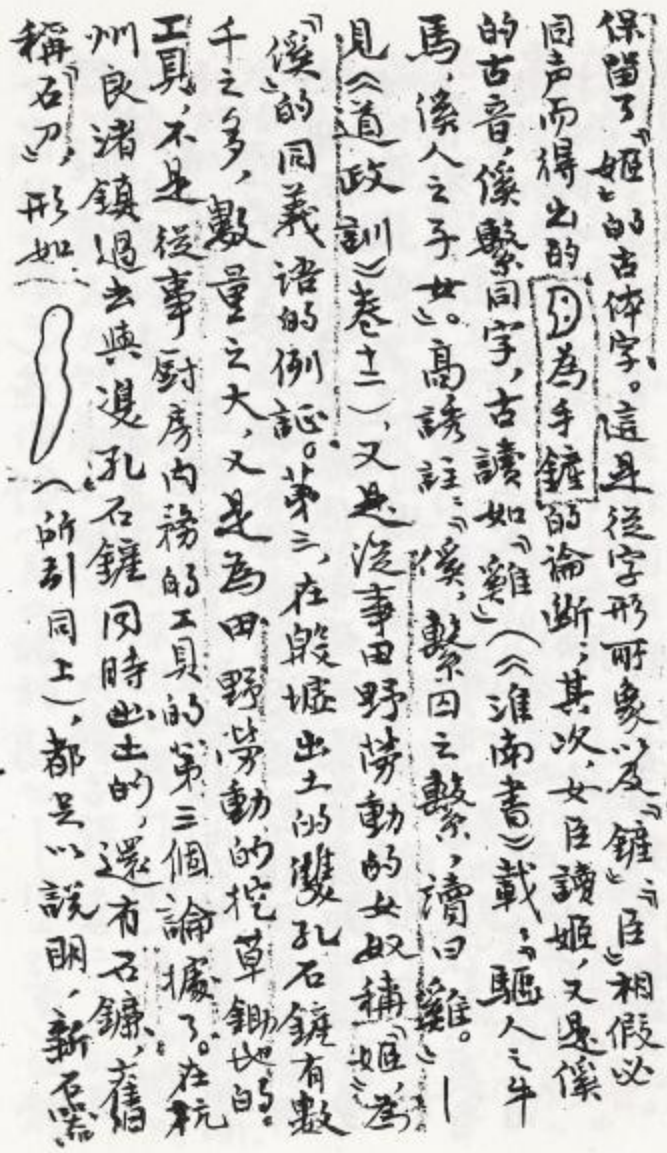 保留了『姬』的古体字。這是從字形所象以及『鏟』『臣』相假必
同声而得出的為手鏟的論断；其次，女臣讀姬，又是傒
的古音，傒繫同字，古讀如『雞』（《淮南書》載：『驅人之牛
馬，傒人之子女』。高誘註：『傒，繫囚之繫，讀曰雞。』—
見《道政訓》卷十二），又是從事田野勞動的女奴稱『姬』為
『傒』的同義语的例証。第三，在殷墟出土的雙孔石鏟有數
千之多，數量之大，又是為田野勞動的挖草鋤地的
工具，不是從事廚房内務的工具的第三個論據了。在杭
州良渚鎮過去與『雙孔石鏟』同時出土的，還有石鐮，舊
稱『石刀』，形如（所引同上），都足以説明，新石器